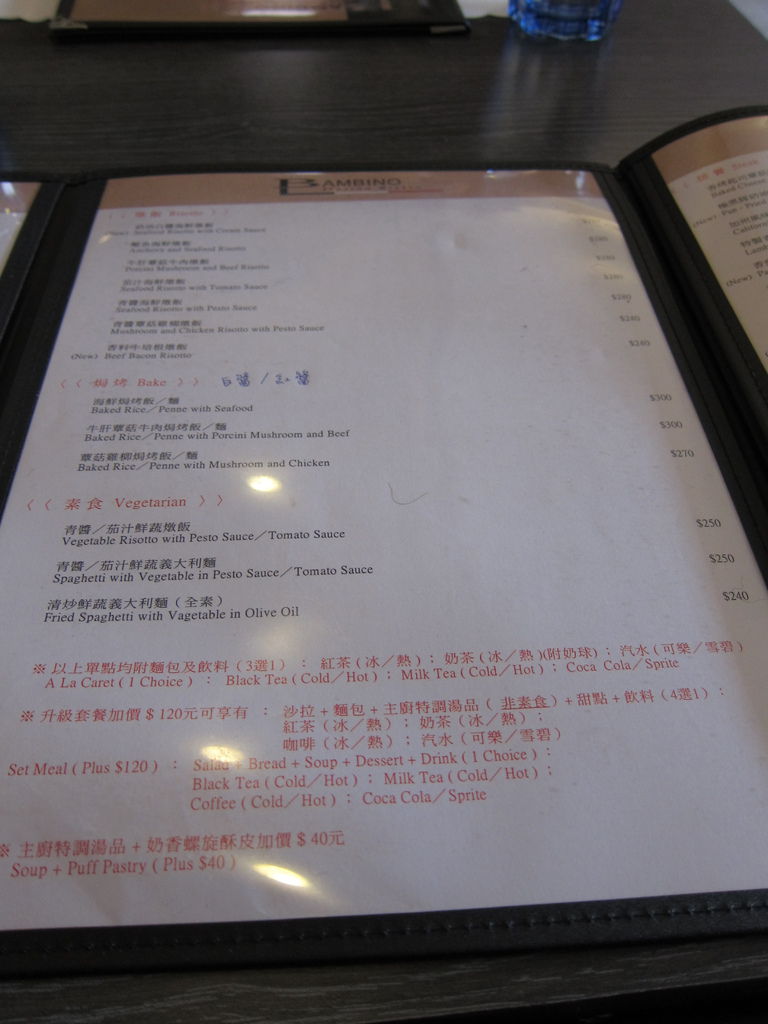 BAMBINO
〈〈 燉飯 Risotto 〉〉
奶油白醬海鮮燉飯
(New) Seafood Risotto with Cream Sauce
鯷魚海鮮燉飯
Anchovy and Seafood Risotto $280
牛肝蕈菇牛肉燉飯
Porcini Mushroom and Beef Risotto $280
茄汁海鮮燉飯
Seafood Risotto with Tomato Sauce $280
青醬海鮮燉飯
Seafood Risotto with Pesto Sauce $280
青醬蕈菇雞柳燉飯 $240
Mushroom and Chicken Risotto with Pesto Sauce
香料牛培根燉飯 $240
(New) Beef Bacon Risotto
〈〈 焗烤 Bake 〉〉 白醬/紅醬
海鮮焗烤飯/麵 $300
Baked Rice/Penne with Seafood
牛肝蕈菇牛肉焗烤飯/麵 $300
Baked Rice/Penne with Porcini Mushroom and Beef
蕈菇雞柳焗烤飯/麵 $270
Baked Rice/Penne with Mushroom and Chicken
〈〈 素食 Vegetarian 〉〉
青醬/茄汁鮮蔬燉飯 $250
Vegetable Risotto with Pesto Sauce/Tomato Sauce
青醬/茄汁鮮蔬義大利麵 $250
Spaghetti with Vegetable in Pesto Sauce/Tomato Sauce
清炒鮮蔬義大利麵(全素) $240
Fried Spaghetti with Vagetable in Olive Oil
※ 以上單點均附麵包及飲料(3選1) : 紅茶(冰/熱) ; 奶茶(冰/熱)(附奶球) ; 汽水(可樂/雪碧)
A La Caret ( 1 Choice ) : Black Tea (Cold/Hot) ; Milk Tea (Cold/Hot) ; Coca Cola/Sprite
※ 升級套餐加價 $ 120元可享有 : 沙拉 + 麵包 + 主廚特調湯品 ( 非素食 ) + 甜點 + 飲料 (4選1) :
紅茶(冰/熱) ; 奶茶(冰/熱) ;
咖啡(冰/熱) ; 汽水(可樂/雪碧)
Set Meal ( Plus $120 ) : Salad + Bread + Soup + Dessert + Drink ( 1 Choice ) :
Black Tea ( Cold/Hot ) ; Milk Tea ( Cold/Hot ) ;
Coffee ( Cold/Hot ) ; Coca Cola/Sprite
※ 主廚特調湯品 + 奶香螺旋酥皮加價 $ 40元
Soup + Puff Pastry ( Plus $40 )
Steak
Baked Cheese
(New) Pan - Fried
Lamb
(New)